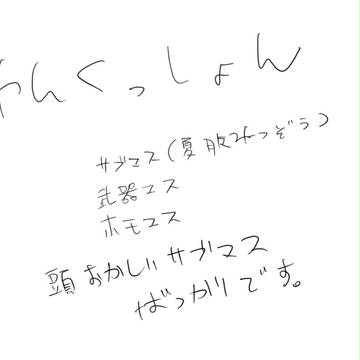 わんくっしょん
サブマス(夏服みつぞう)
武器マス
ホモマス
頭おかしいサブマス
ばっかりです。